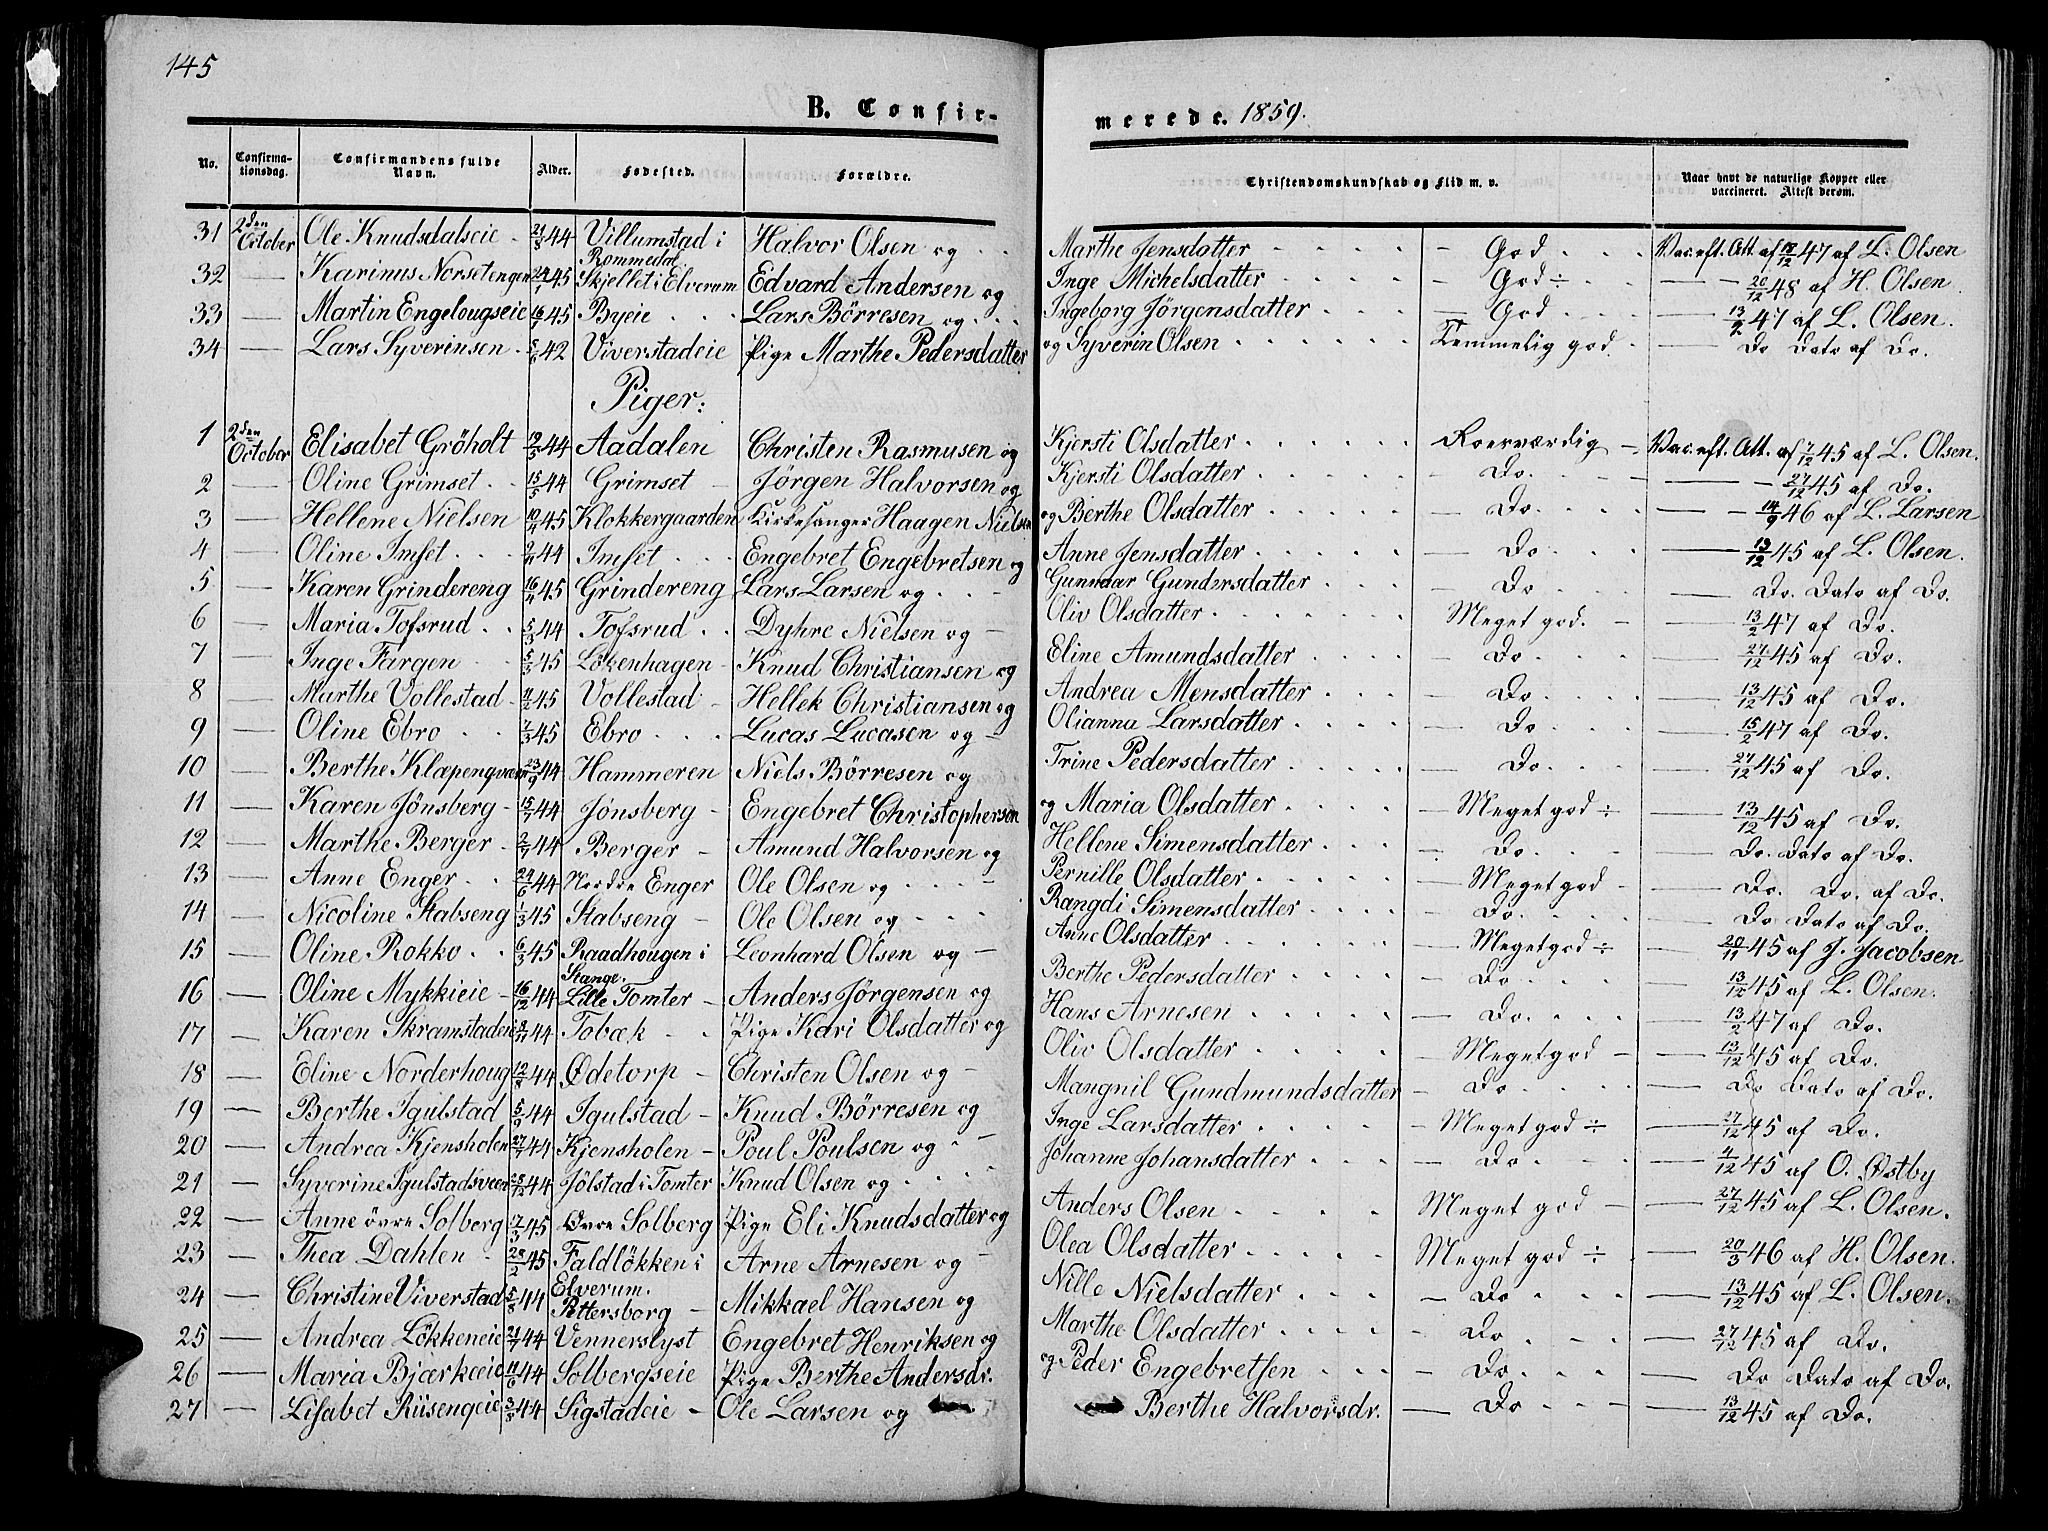 145
B. Confir-
merede. 1859.
No. Confirma-tionsdag. Confirmandens fulde Navn. Alder. Fødested. Forældre. Christendomskundskab og Flid m. v. Naar havt de naturlige Kopper eller vaccineret. Attest derom.
31 2den October Ole Knudsdalseie 21/8 44 Villumstad i Rommedal Halvor Olsen og Marthe Jensdatter God Vac. eft. Att. af 12/12 47 af L. Olsen
32 — Karinus Norsetengen 24/1 45 Skjellet i Elverum Edvard Andersen og Inge Michelsdatter God ÷ — 20/12 48 af H. Olsen
33 — Martin Engelougseie 16/1 45 Byeie Lars Börresen og Ingeborg Jørgensdatter God — 13/2 47 af L. Olsen.
34 — Lars Syverinsen 5/6 42 Viverstadeie Pige Marthe Pedersdatter og Syverin Olsen Temmelig god. — Do Dato af Do.
Piger:
1 2den October Elisabet Gröholt 12/3 44 Aadalen Christen Rasmusen og Kjersti Olsdatter Roesværdig Vac. eft. Att. af 7/12 45 af L. Olsen.
2 — Oline Grimset 15/5 44 Grimset Jörgen Halvorsen og Kjersti Olsdatter Do. — 27/12 45 af Do.
3 — Hellene Nielsen 10/4 45 Klokkergaarden Kirkesanger Haagen Nielsen og Berthe Olsdatter Do. — 14/9 46 af L. Larsen
4 — Oline Imset 2/11 44 Imset Engebret Engebretsen og Anne Jensdatter Do — 13/12 45 af L. Olsen.
5 — Karen Grindereng 16/4 45 Grindereng Lars Larsen og Gunnaar Gundersdatter Do — Do. Dato af Do.
6 — Maria Tofsrud 5/3 44 Tofsrud Dyhre Nielsen og Oliv Olsdatter Meget god. — 13/2 47 af Do.
7 — Inge Fargen 5/3 45 Lökenhagen Knud Christiansen og Eline Amundsdatter Do — 27/12 45 af Do.
8 — Marthe Vollestad 11/2 45 Vollestad Hellek Christiansen og Andrea Mensdatter Do — 13/12 45 af Do.
9 — Oline Ebro 7/3 45 Ebro Lucas Lucasen og Olianna Larsdatter Do — 15/2 47 af Do.
10 — Berthe 23/9 44 Hammeren Niels Börresen og Trine Pedersdatter Do — 27/12 45 af Do.
11 — Karen Jönsberg 15/7 44 Jönsberg Engebret Christophersen og Maria Olsdatter Meget god ÷ — 13/12 45 af Do.
12 — Marthe Berger 2/7 44 Berger Amund Halvorsen og Hellene Simensdatter Do — Do. Dato af Do.
13 — Anne Enger 24/6 44 Nordre Enger Ole Olsen og Pernille Olsdatter Meget god — Do. Do. af Do.
14 — Nicoline Stabseng 1/3 45 Stabseng Ole Olsen og Rangdi Simensdatter Do. — Do Dato af Do.
15 — Oline Rokko 6/3 45 Raadhougen i Stange. Leonhard Olsen og Anne Olsdatter Meget god ÷ — 20/11 45 af J. Jacobsen
16 — Oline Mykkieie 16/12 44 Lille Tomter Anders Jörgensen og Berthe Pedersdatter Do — 13/12 45 af L. Olsen.
17 — Karen Skramstadeie 2/11 44 Tobæk Pige Kari Olsdatter og Hans Arnesen Do. — 13/2 47 af Do.
18 — Eline Norderhoug 12/8 44 Ødetorp Christen Olsen og Oliv Olsdatter Meget god — 13/12 45 af Do.
19 — Berthe Igulstad 5/9 44 Igulstad Knud Börresen og Mangnil Gundmundsdatter Do — Do Dato af Do.
20 — Andrea Kjensholen 27/7 44 Kjensholen Poul Poulsen og Inge Larsdatter Meget god ÷ — 27/12 45 af Do.
21 — Syverine Igulstadsveen 25/12 44 Jölstad i Tomter Knud Olsen og Johanne Johansdatter Do — 4/12 45 af O. Østby
22 — Anne övre Solberg 7/3 45 Øvre Solberg Pige Eli Knudsdatter og Anders Olsen Meget god — 27/12 45 af L. Olsen.
23 — Thea Dahlen 28/2 45 Faldlökken i Elverum. Arne Arnesen og Olea Olsdatter Meget god ÷ — 20/3 46 af H. Olsen.
24 — Christine Viverstad 5/8 44 Pettersborg Mikkael Hansen og Nille Nielsdatter Do — 13/12 45 af L. Olsen.
25 — Andrea Lökkeneie 21/7 44 Vennerslyst Engebret Henriksen og Marthe Olsdatter Do — 27/12 45 af Do.
26 — Maria Bjærkeeie 11/6 44 Solbergseie Pige Berthe Andersdr. og Peder Engebretsen Do — Do Dato af Do.
27 — Lisabet Riisengeie 3/8 44 Sigstadeie Ole Larsen og Berthe Halvorsdr. Do — 13/12 45 af Do.